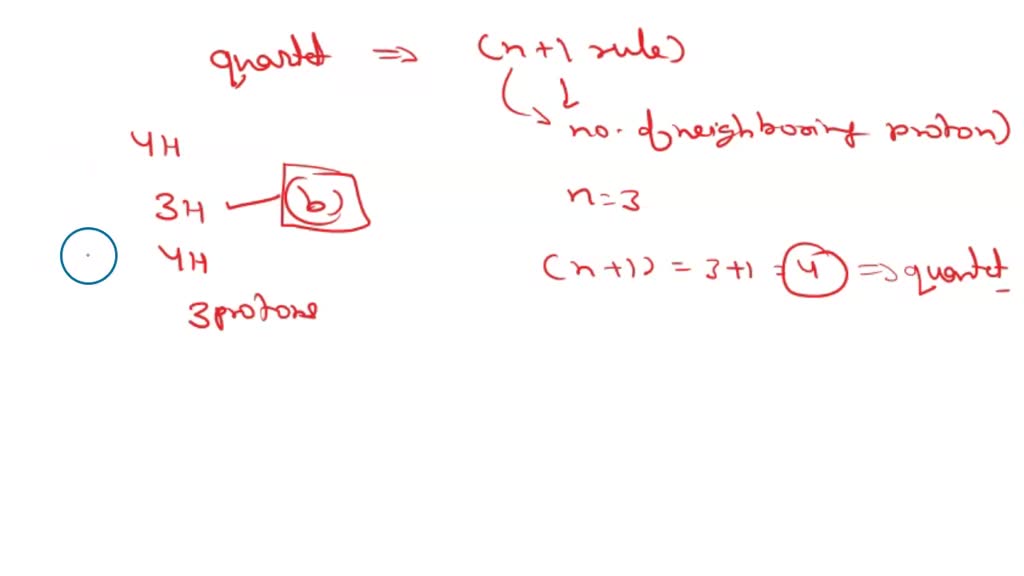 quartet ⇒ (n+1 rule)
no. of neighbooring proton)
4H
3H — (b)
n=3
4H
(n+1) = 3+1 = 4 ⇒ quartet
3 protons